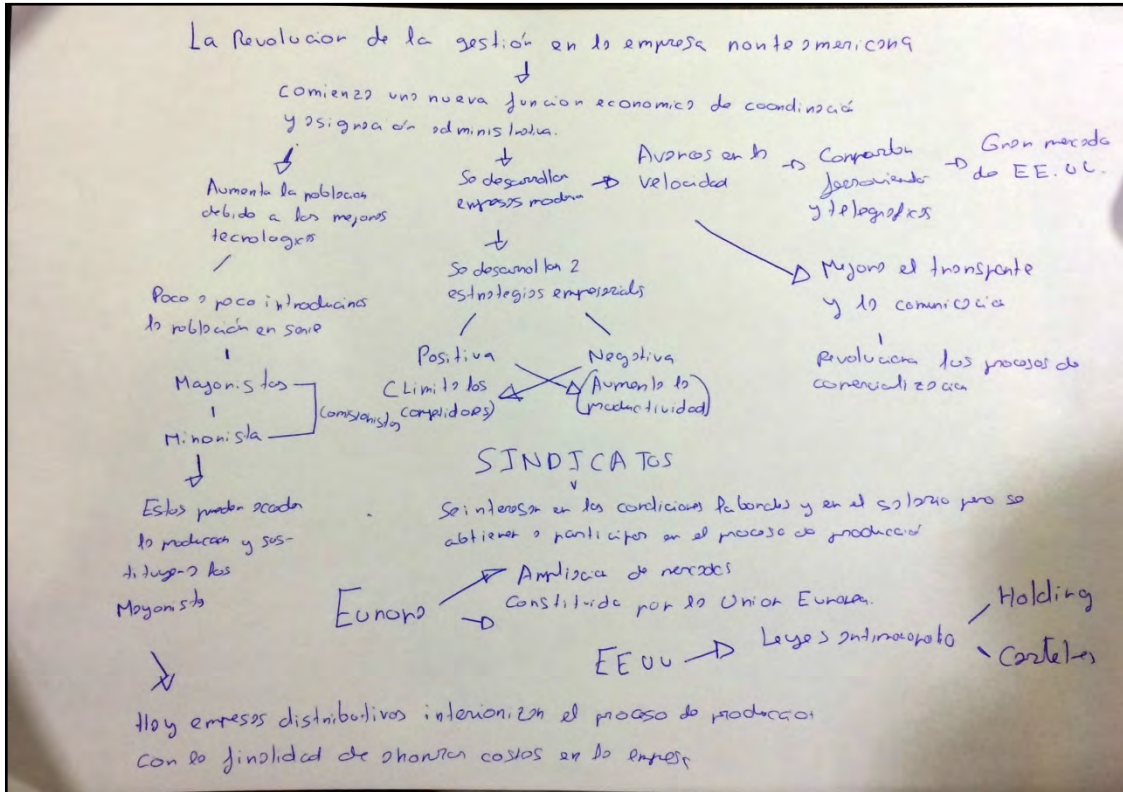 La Revolucion de la gestión en la empresa norteamericana
comienza una nueva funcion economica de coordinació
y asignación administrativa.
Aumenta la poblacion
debido a las mejoras
tecnologicas
Poco a poco introducimos
la población en serie
Mayoristas
Minorista
comisionistas
Estos pueden acceder
la produccion y sus-
tituyen a los
Mayorista
Se desarrollan
empresas moder
Se desarrollan 2
estrategias empresariales
Positiva
(Limita los
competidores)
Negativa
(Aumenta la
productividad)
Avances en la
velocidad
Comparten
ferroviento
y telegraficos
Gran mercado
de EE.UU.
Mejora el transporte
y la comunicacia
Revoluciona los procesos de
comercialización
SINDICATOS
Se interesan en las condiciones laborales y en el salario pero se
abtienen a participar en el proceso de producció
Europa
Ampliacia de mercados
Constituida por la Union Europea.
EEUU
Leyes antimonopolio
Holding
Carteles
Hoy empresas distributivas interiorizan el proceso de produccion
con la finalidad de ahorrar costos en la empresa